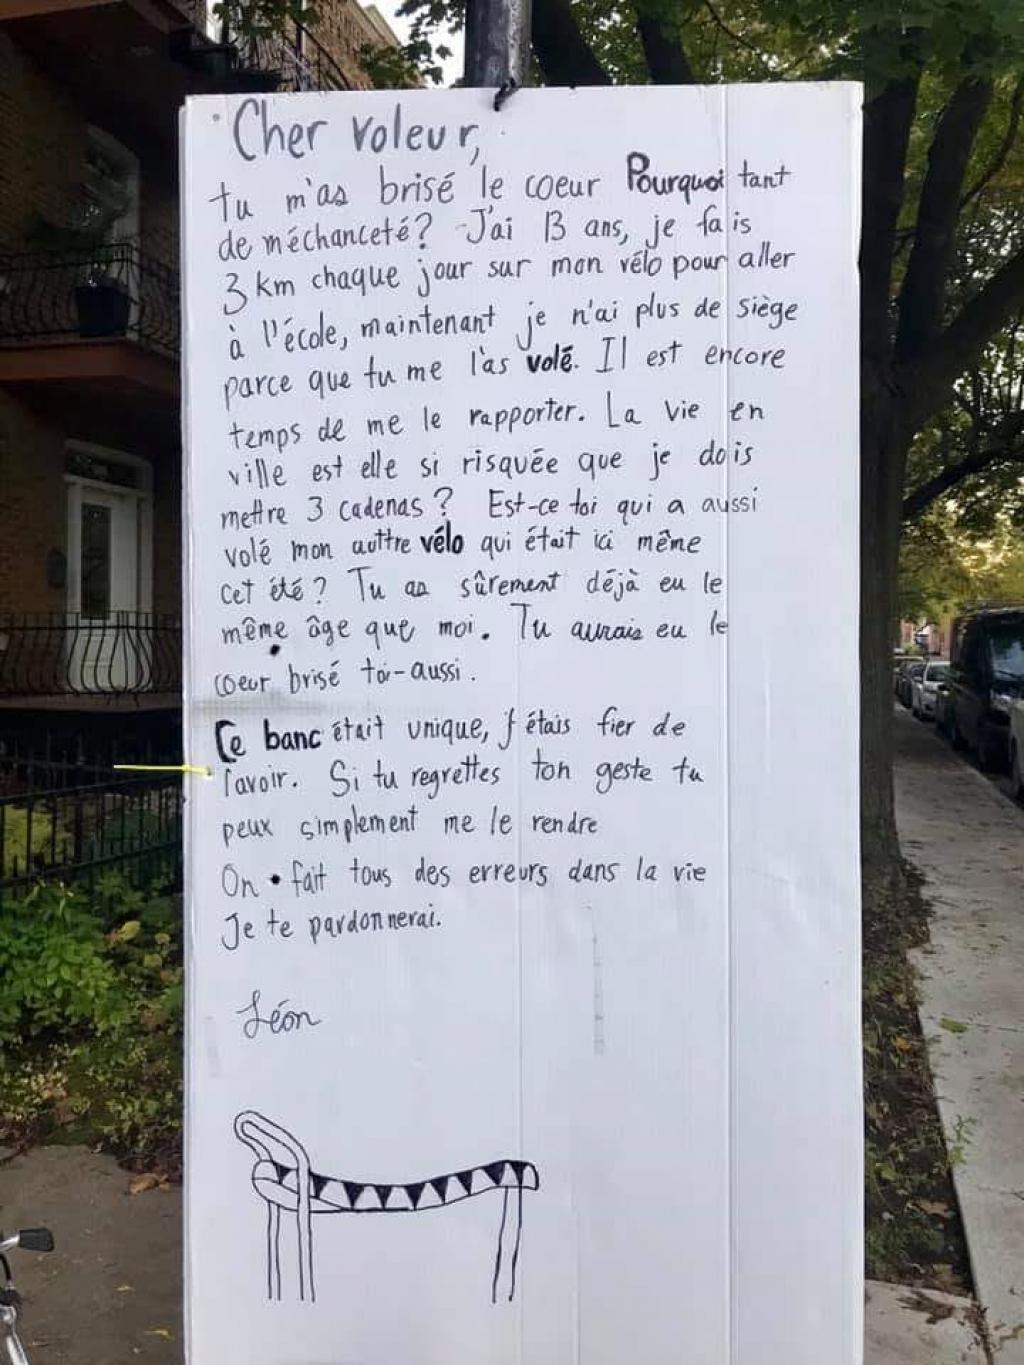 Cher voleur,
tu m'as brisé le coeur Pourquoi tant
de méchanceté? J'ai 13 ans, je fais
3 km chaque jour sur mon vélo pour aller
à l'école, maintenant je n'ai plus de siège
parce que tu me l'as volé. Il est encore
temps de me le rapporter. La vie en
ville est elle si risquée que je dois
mettre 3 cadenas? Est-ce toi qui a aussi
volé mon auttre vélo qui était ici même
cet été? Tu as sûrement déjà eu le
même âge que moi. Tu aurais eu le
coeur brisé toi-aussi.
Ce banc était unique, j'étais fier de
l'avoir. Si tu regrettes ton geste tu
peux simplement me le rendre
On fait tous des erreurs dans la vie
Je te pardonnerai.
Léon